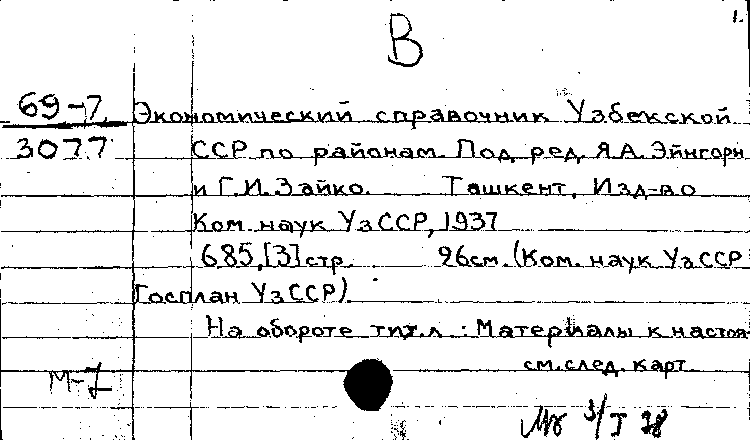 1.
В
69-7
3077
Экономический справочник Узбекской
ССР по районам. Под ред. Я.А. Эйнгорн
и Г.И. Зайко. Ташкент, Изд-во
Ком. наук УзССР, 1937
685,[3]стр. 26см. (Ком. наук УзССР
Госплан УзССР).
На обороте тит.л.: Материалы к настоя-
см.след. карт.
М-7
3/I 38